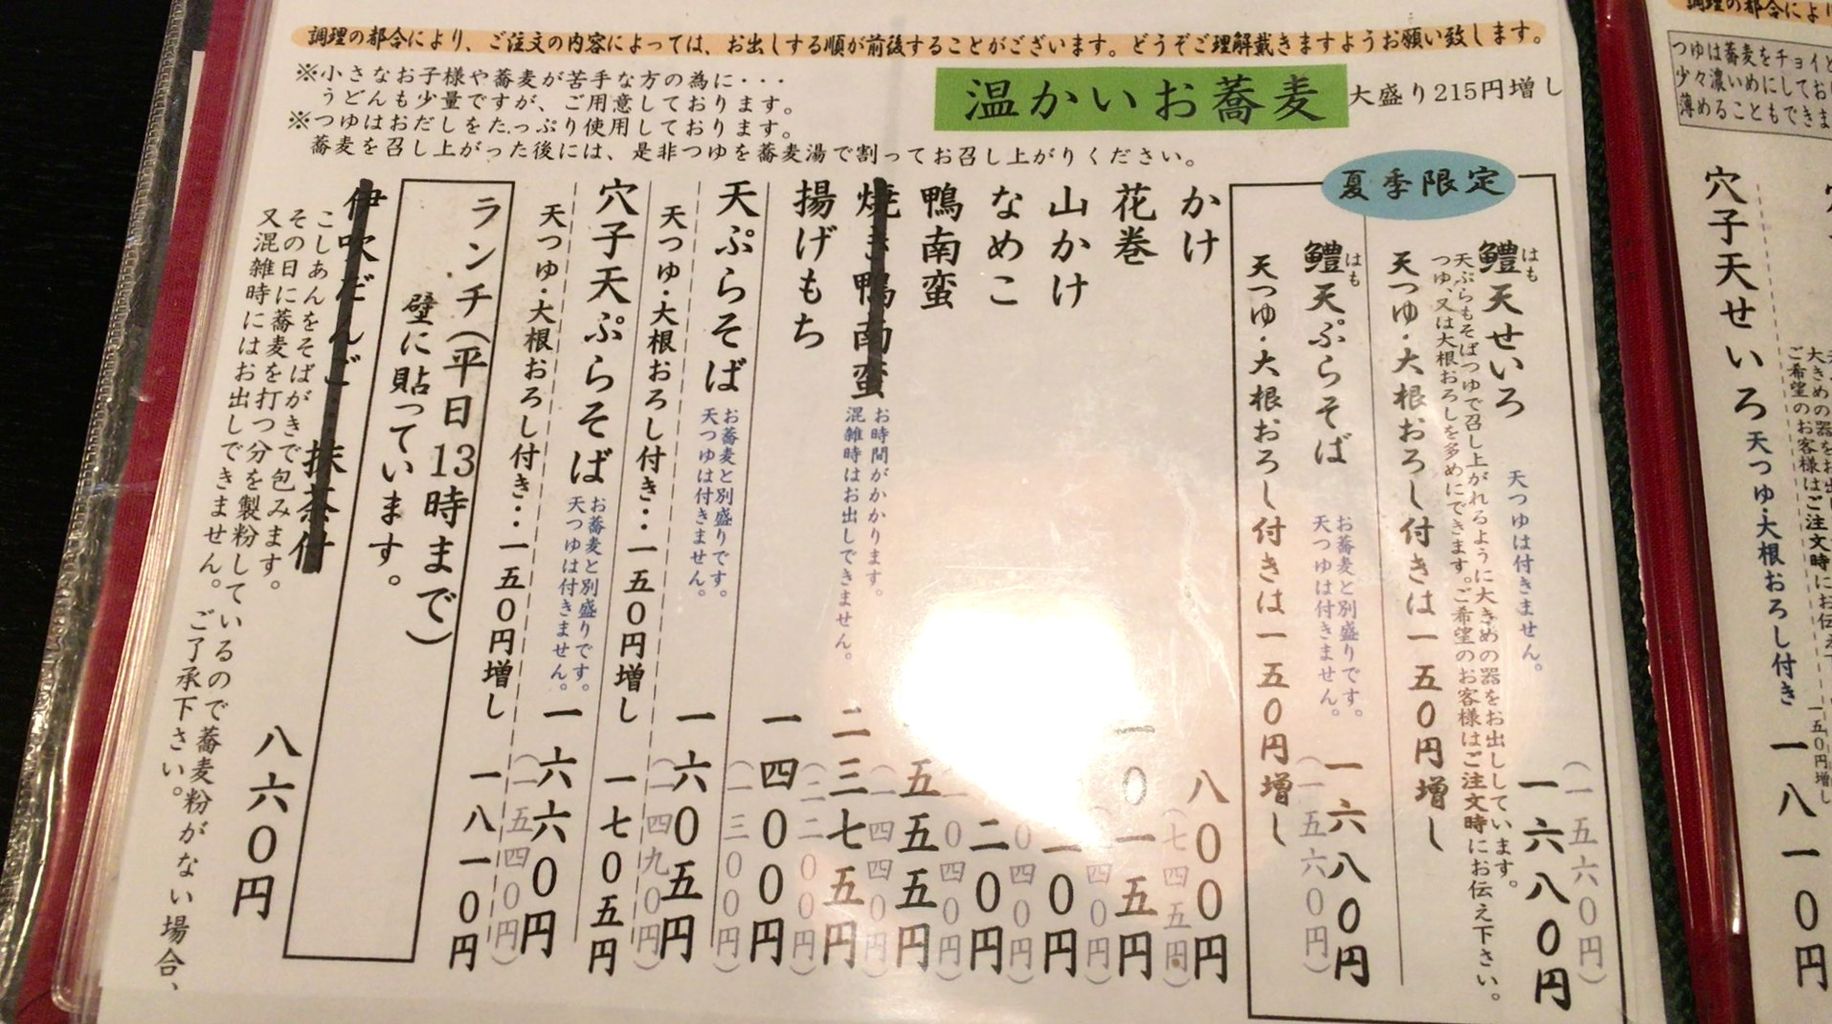 調理の都合により、ご注文の内容によっては、お出しする順が前後することがございます。どうぞご理解戴きますようお願い致します。
※小さなお子様や蕎麦が苦手な方の為に・・・
うどんも少量ですが、ご用意しております。
※つゆはおだしをたっぷり使用しております。
蕎麦を召し上がった後には、是非つゆを蕎麦湯で割ってお召し上がりください。
温かいお蕎麦
大盛り215円増し
夏季限定
鱧天せいろ
はも
天つゆは付きません。
一六八〇円
(一五六〇円)
天ぷらもそばつゆで召し上がれるように大きめの器をお出ししています。
つゆ、又は大根おろしを多めにできます。ご希望のお客様はご注文時にお伝え下さい。
天つゆ・大根おろし付きは一五〇円増し
鱧天ぷらそば
はも
お蕎麦と別盛りです。
天つゆは付きません。
一六八〇円
(一五六〇円)
天つゆ・大根おろし付きは一五〇円増し
かけ
八〇〇円
(七四五円)
花巻
一〇一五円
山かけ
なめこ
鴨南蛮
焼き鴨南蛮
お時間がかかります。
混雑時はお出しできません。
二三七五円
(二二〇〇円)
揚げもち
一四〇〇円
(一三〇〇円)
天ぷらそば
お蕎麦と別盛りです。
天つゆは付きません。
一六〇五円
(一四九〇円)
天つゆ・大根おろし付き‥一五〇円増し
一七〇五円
穴子天ぷらそば
お蕎麦と別盛りです。
天つゆは付きません。
一六六〇円
(一五四〇円)
天つゆ・大根おろし付き‥一五〇円増し
一八一〇円
ランチ(平日13時まで)
壁に貼っています。
伊吹だんご 抹茶付
八六〇円
こしあんをそばがきで包みます。
その日に蕎麦を打つ分を製粉しているので蕎麦粉がない場合、
又混雑時にはお出しできません。ご了承下さい。
つゆは蕎麦をチョイと
少々濃いめにしており
薄めることもできま
穴子天せいろ
天つゆ・大根おろし付き
一八一〇円
一五〇円増し